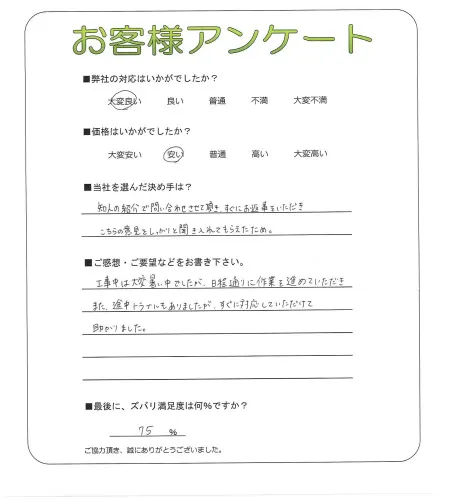 お客様アンケート
■弊社の対応はいかがでしたか?
大変良い 良い 普通 不満 大変不満
■価格はいかがでしたか?
大変安い 安い 普通 高い 大変高い
■当社を選んだ決め手は?
知人の紹介で問い合わせさせて頂き、すぐにお返事をいただき
こちらの意見をしっかりと聞き入れてもらえたため。
■ご感想・ご要望などをお書き下さい。
工事中は大変暑い中でしたが、日程通りに作業を進めていただき
また、途中トラブルもありましたが、すぐに対応していただけて
助かりました。
■最後に、ズバリ満足度は何%ですか?
75 %
ご協力頂き、誠にありがとうございました。